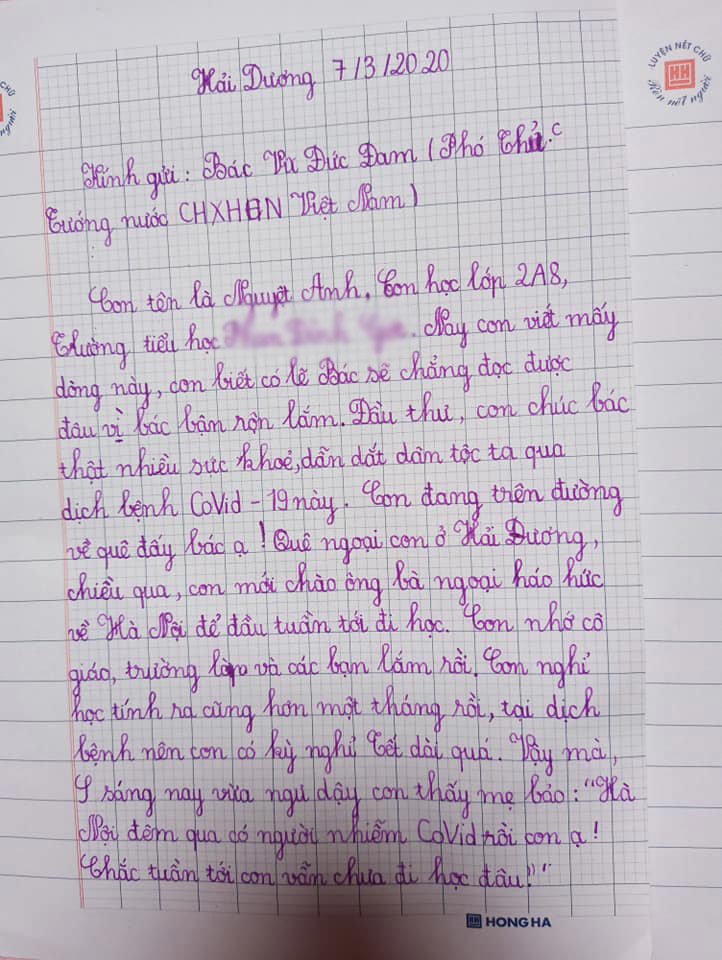 Hải Dương 7/3/2020
LUYỆN NÉT CHỮ
HH
Rèn nết người
Kính gửi: Bác Vũ Đức Đam (Phó Thủ
tướng nước CHXHCN Việt Nam)
Con tên là Nguyệt Anh. Con học lớp 2A8,
trường tiểu học . Nay con viết mấy
dòng này, con biết có lẽ Bác sẽ chẳng đọc được
đâu vì bác bận rộn lắm. Đầu thư, con chúc bác
thật nhiều sức khoẻ, dẫn dắt dân tộc ta qua
dịch bệnh CoVid - 19 này. Con đang trên đường
về quê đấy bác ạ! Quê ngoại con ở Hải Dương,
chiều qua, con mới chào ông bà ngoại háo hức
về Hà Nội để đầu tuần tới đi học. Con nhớ cô
giáo, trường lớp và các bạn lắm rồi. Con nghỉ
học tính ra cũng hơn một tháng rồi, tại dịch
bệnh nên con có kỳ nghỉ Tết dài quá. Vậy mà,
sáng nay vừa ngủ dậy con thấy mẹ bảo: "Hà
Nội đêm qua có người nhiễm CoVid rồi con ạ!
Chắc tuần tới con vẫn chưa đi học đâu!"
HH HONG HA